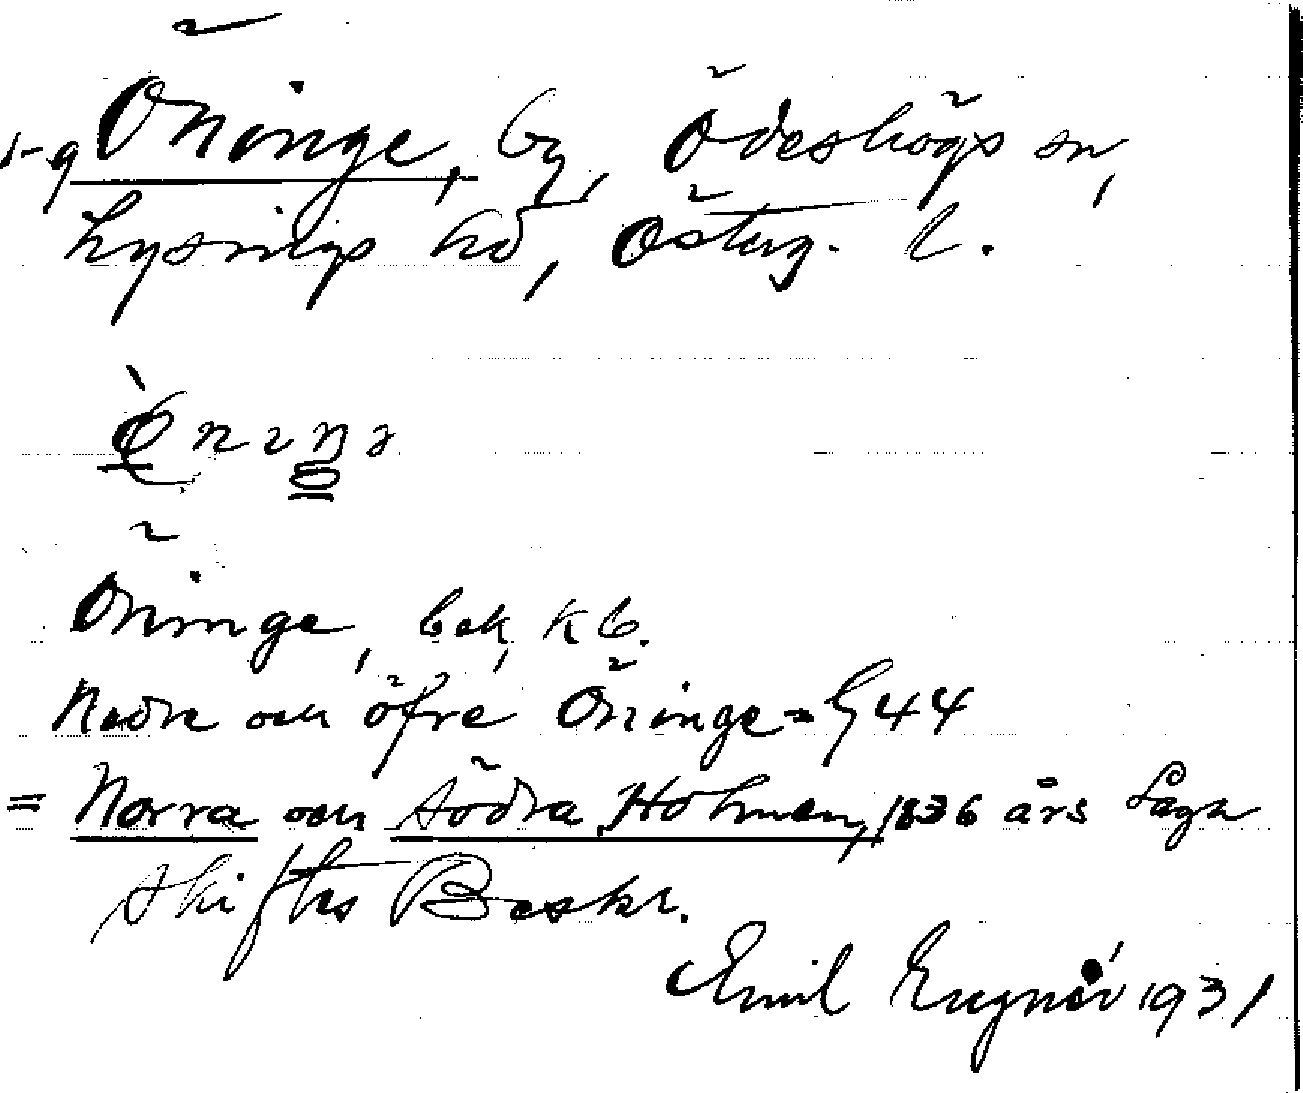 1-9 Öninge, by, Ödeshögs sn,
Lysings hd, Österg. l.
Öninge, bek, kb.
Nedre och öfre Öninge = G44
= Norra och södra Holmen, 1836 års Laga
skiftes Beskr.
Emil Eugnér 1931